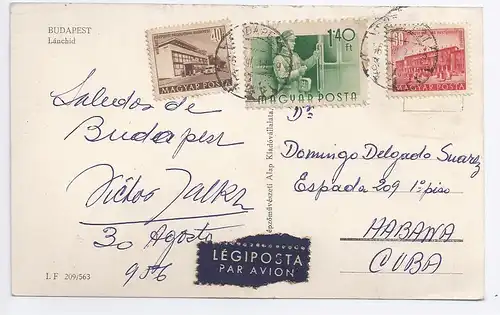 BUDAPEST
Lánchíd
MAGYAR POSTA
1·40
Ft
MAGYAR POSTA
MAGYAR POSTA
Saludos de
Budapest
30 Agosto
956
Képzőművészeti Alap Kiadóvállalata
Domingo Delgado Suarez
Espada 209 1º piso
HABANA
CUBA
LÉGIPOSTA
PAR AVION
L F 209/563